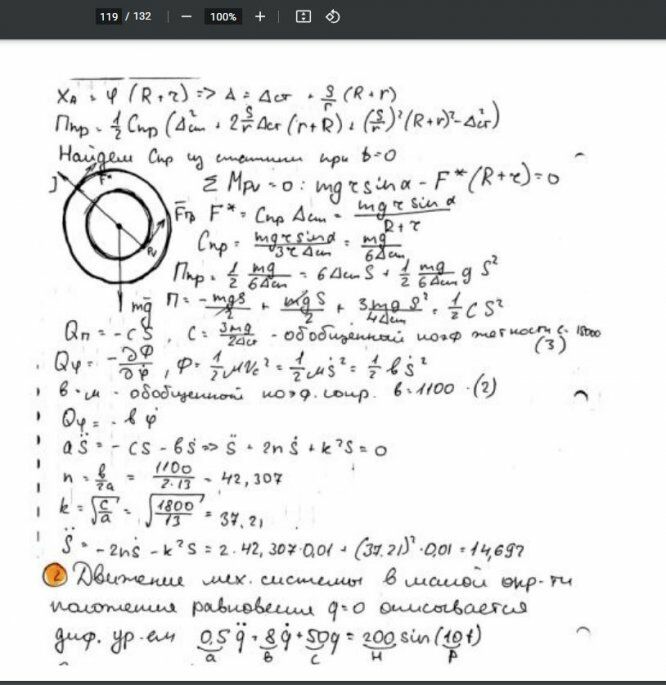 119 / 132 | — 100% +
X_A = φ (R + r) => Δ = Δст + S/r (R + r)
Ппр = 1/2 Cпр (Δ²ст + 2 S/r Δст (r + R) + (S/r)² (R + r)² - Δ²ст)
Найдем Cпр из статики при t=0
Σ M_PV = 0 : mg r sin α - F* (R + r) = 0
F*
F̅пр F* = Cпр Δст = mg r sin α / R + r
Cпр = mg r sin α / 3r Δст = mg / 6Δст
Ппр = 1/2 mg / 6Δст = 6Δст S + 1/2 mg / 6Δст g S²
mg̅ П = -mgS / 2 + mgS / 2 + 3mg S² / 4Δст = 1/2 C S²
Qп = -cS , C = 3mg / 2Δст - обобщенный коэф жесткости
(3)
Qφ = -∂Φ / ∂φ̇ , Φ = 1/2 μVc² = 1/2 μṡ² = 1/2 bṡ²
- обобщенный коэф. сопр. b = 1100 (2)
Qφ = - b φ̇
aS̈ = - cS - bṠ => S̈ + 2nṠ + k²S = 0
n = b / 2a = 1100 / 2·13 = 42,307
k = √c/a = √1800/13 = 37,21
S̈ = -2nṡ - k²S = 2·42,307·0,01 + (37,21)²·0,01 = 14,692
2 Движение мех. системы в малой окр-ти
положения равновесия q=0 описывается
диф. ур-ем 0,5 q̈ + 8 q̇ + 50q = 200 sin (10t)
a b c H P